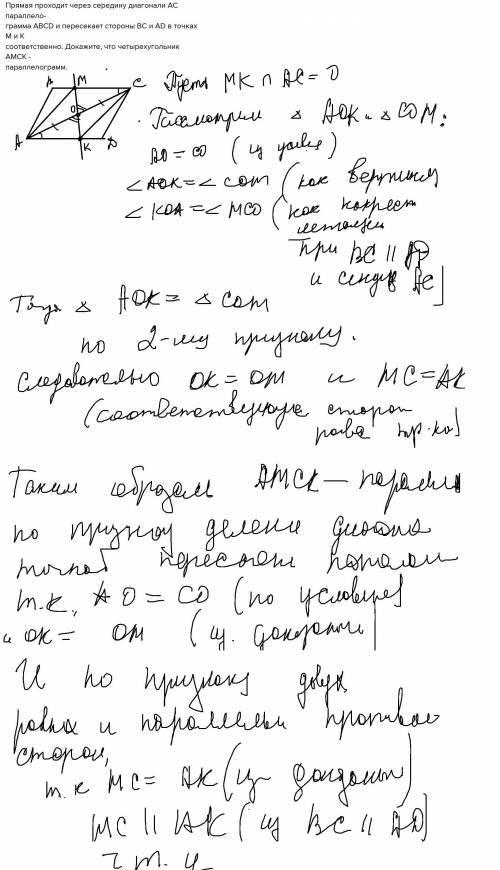 Прямая проходит через середину диагонали АС
параллело-
грамма ABCD и пересекает стороны ВС и AD в точках
М и К
соответственно. Докажите, что четырехугольник
АМСК -
параллелограмм.
M C
O
A K D
Пусть MK ∩ AC = O
Рассмотрим △ AOK и △ COM:
AO = CO (из условия)
∠AOK = ∠COM (как вертикал
∠KOA = ∠MCO (как накрест
лежащи
при BC ∥ AD
и секущ AC)
Тогда △ AOK = △ COM
по 2-му признаку.
Следовательно OK = OM и MC = AK
(соответствующие сторон
равн тр-ко)
Таким образом AMCK — паралл
по признаку делени диагона
точкой пересечен пополам
т.к. AO = CO (по условию)
и OK = OM (из доказанн)
И по признаку двух
равных и параллельн противо
сторон,
т.к MC = AK (из доказанн)
MC ∥ AK (из BC ∥ AD)
ч.т.д.